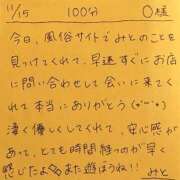 11/15 100分 O様
今日、風俗サイトでみとのことを
見つけてくれて、早速すぐにお店
に問い合わせして会いに来てく
れて本当にありがとう(*^^*)
凄く優しくしてくれて、安心感が
あって、とても時間経つのが早く
感じたよ また遊ぼうね!!
みと